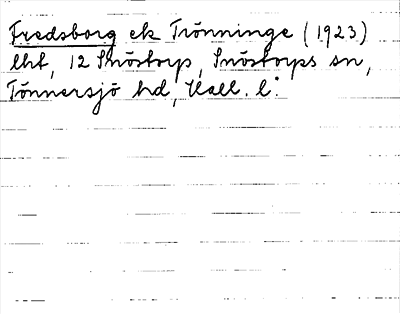 Fredsborg ek Trönninge (1923)
lht, 12 Snöstorp, Snöstorps sn,
Tönnersjö hd, Hall. l: